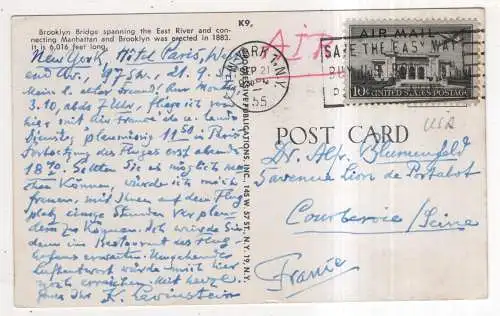 K9.
Brooklyn Bridge spanning the East River and con-
necting Manhattan and Brooklyn was erected in 1883.
It is 6,016 feet long.
New York, Hôtel Paris, West
End Av., 97 St., 21.9.55
Sehr Freund! Nur Montag
3.10, abds 7 Uhr, fliege ich von
hier mit Air France ab u. lande
Dienstag 11 50 in Paris
Fortsetzung des Fluges erst abends
18 20. Sollten Sie es möglich machen
können, würde ich mich
freuen, mit Ihnen auf dem Flug-
platz einige Stunden
zu können. Ich würde Sie
dann im Restaurant des Flug-
hafens erwarten. Umgehende
Luftantwort würde mich hier
noch erreichen. Mit herzl.
Ihr K. Levinstein
PUBLICATIONS, INC., 145 W. 57 ST., N.Y. 19, N.Y.
AIR
NEW YORK 1, N.Y.
SEP 21
55
SAFE THE EASY WAY
AIR MAIL
10¢ UNITED STATES POSTAGE
USA
POST CARD
Dr. Alf. Blumenfeld
5 avenue Lion de
Courbevoie / Seine
France